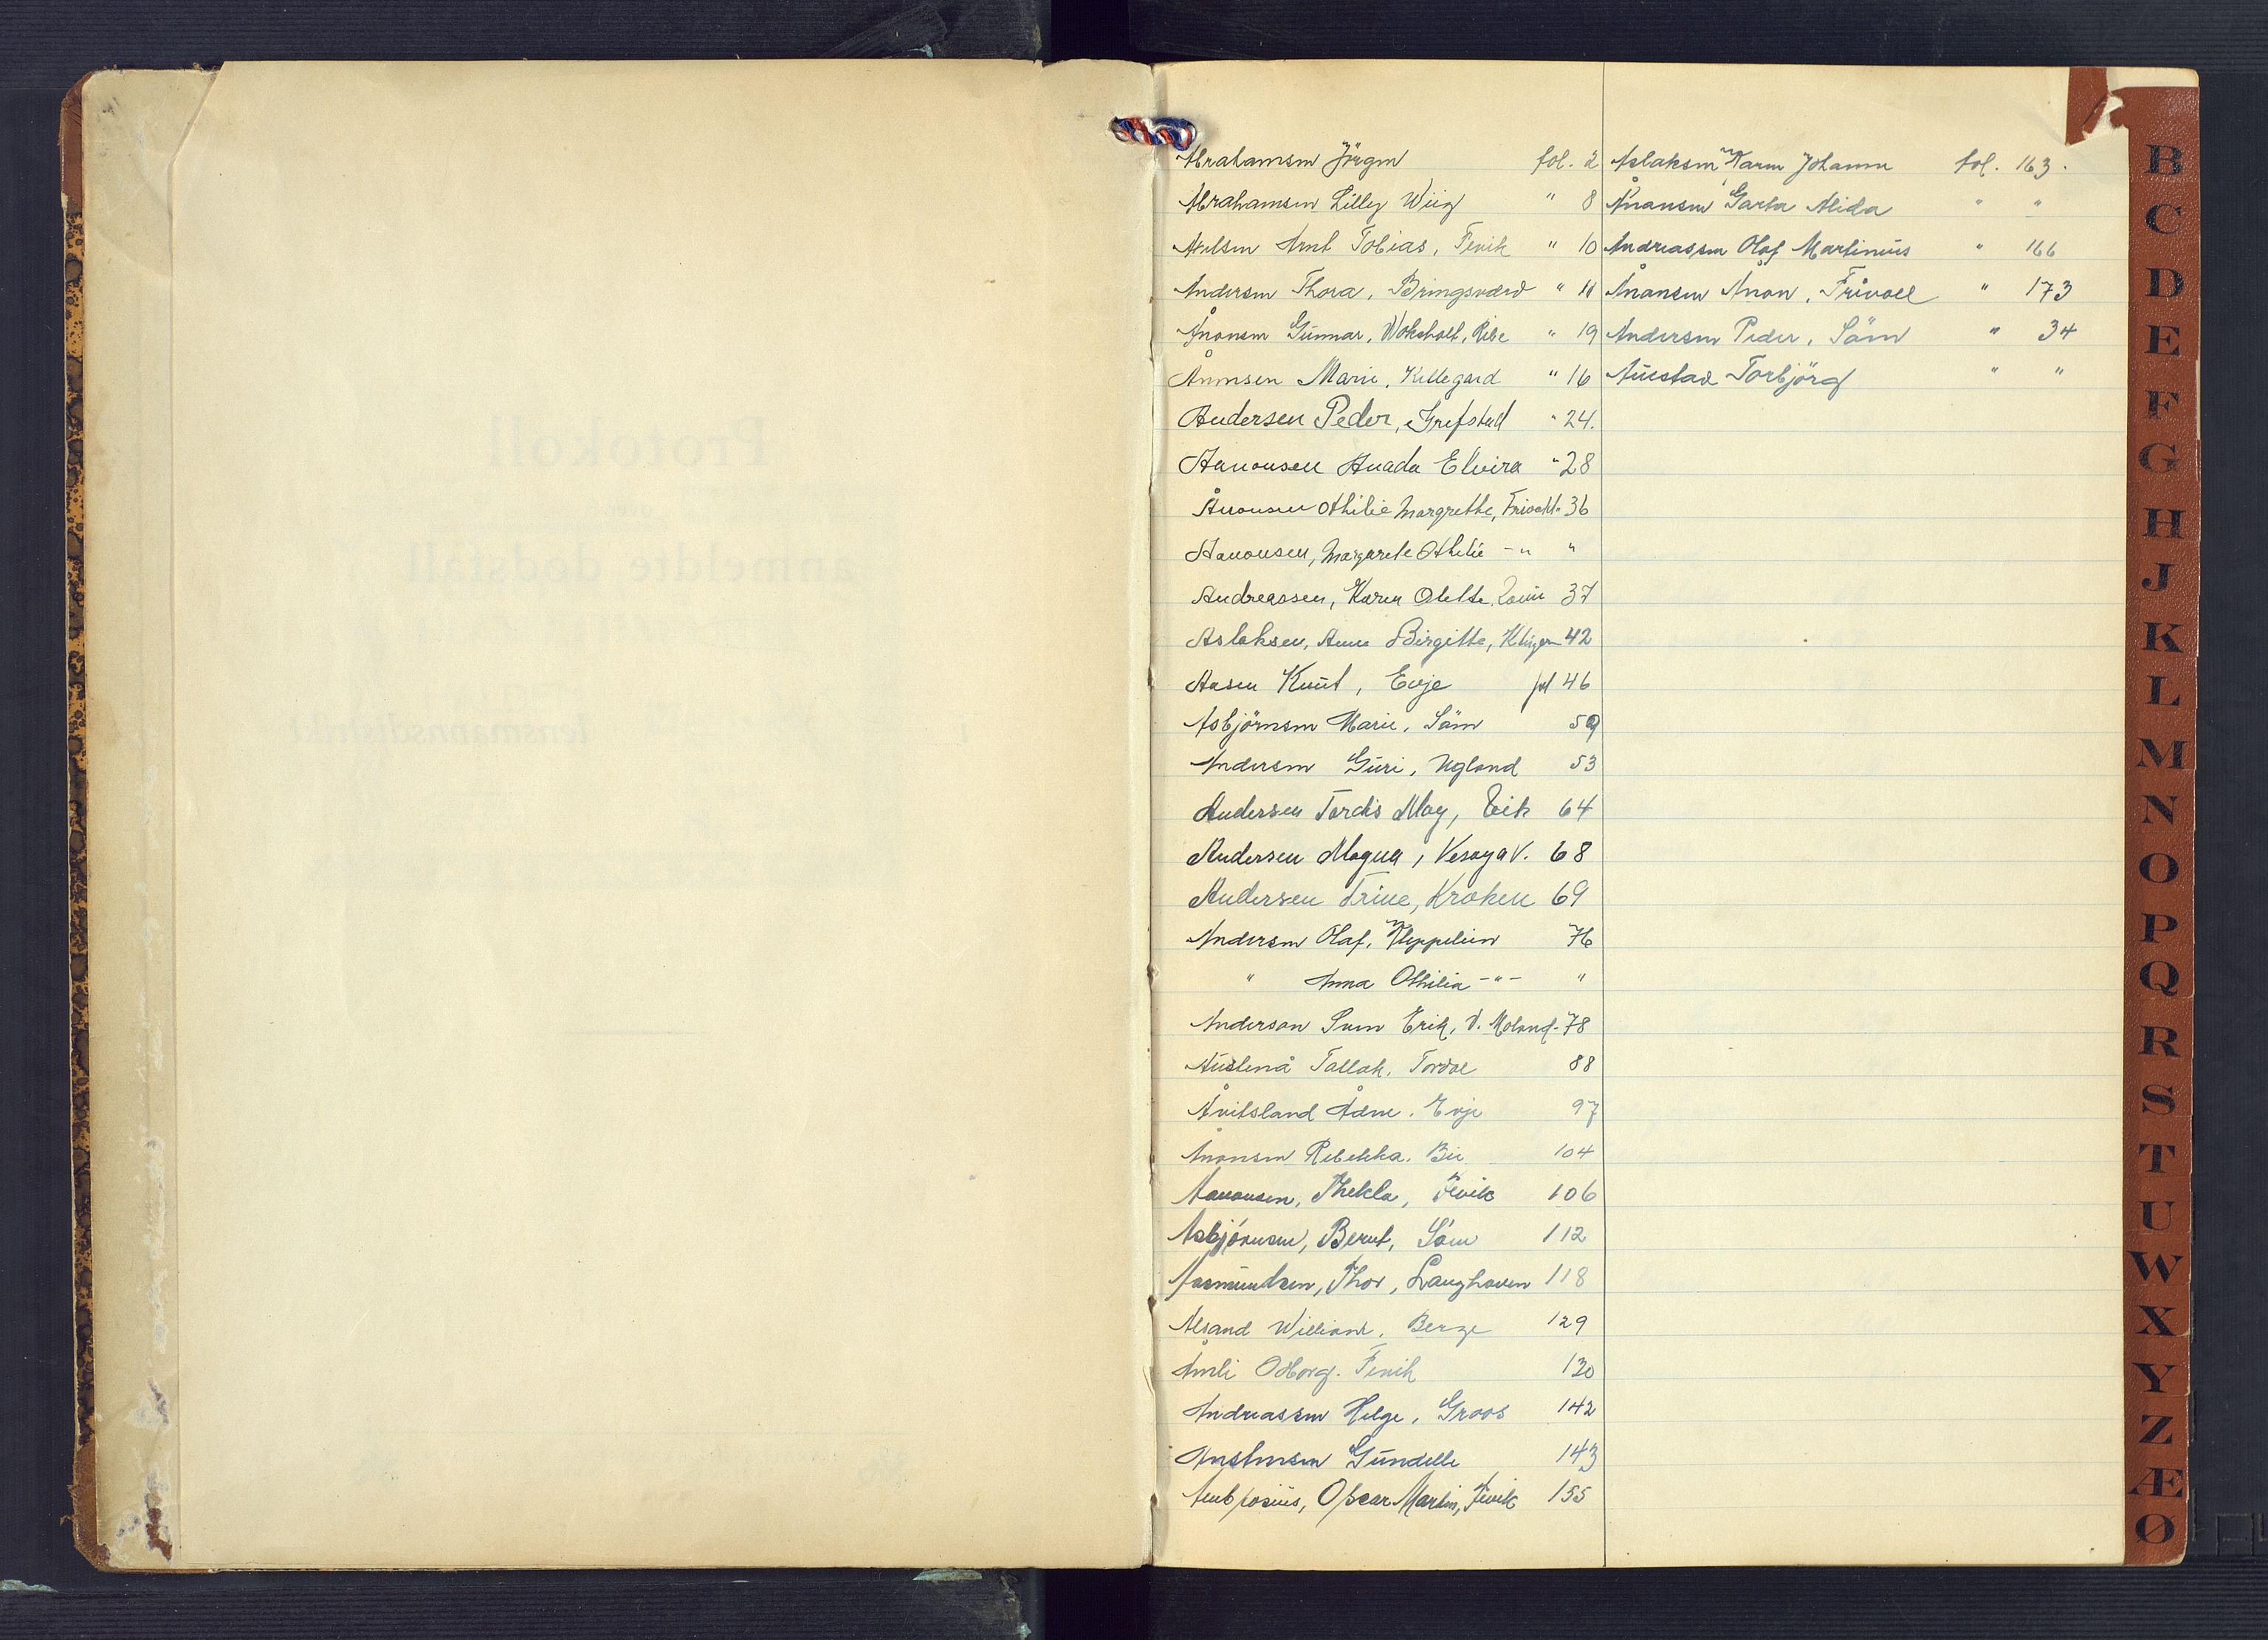 Abrahamsen Jörgen fol. 2
Abrahamsen Lilley Wiig " 8
Axelsen Arnt Tobias, Fevik " 10
Andersen Thora, Bringsværd " 11
Ånonsen Gunnar, Voksholt, Ribe " 19
Ånonsen Marie, Killegard " 16
Andersen Peder, Grefstad " 24.
Aanonsen Anada Elvira " 28
Ånonsen Othilie Margrethe, Frivold " 36
Aanonsen, Margarete Othilie -"- "
Andreassen, Karen Olette, 37
Aslaksen, Anne Birgitte, 42
Aasen Knut, Evje fol 46
Asbjörnsen Marie, Söm 50
Andersen Guri, Ugland 53
Andersen Tordis May, Vik 64
Andersen Magna, Vesøya V. 68
Andersen Trine, Kroken 69
Andersen Olaf, 76
" Anna Othilia -"- "
Anderson Sven Erik, V. Moland 78
Austenå Tallak, 88
Åvitsland Ådne, Evje 97
Ånonsen Rebekka, Bie 104
Aanonsen, Thekla, Fevik 106
Asbjörnsen, Bernt, Söm 112
Aasmundsen, Thor, Langhaven 118
Alsand William, Berge 129
Åmli Odborg, Fevik 130
Andreassen Helge, Groos 142
Anstensen Gundelle 143
Ambrosius, Oscar Martin, Fevik 155
Aslaksen Karen Johanne fol. 163.
Ånonsen Garta Alida " "
Andreassen Olaf Martinius " 166
Ånonsen Ånon, Frivoll " 173
Andersen Peder, Söm " 34
Austad Torbjörg " "
B
C
D
E
F
G
H
J
K
L
M
N
O
P
Q
R
S
T
U
W
X
Y
Z
Æ
Ø